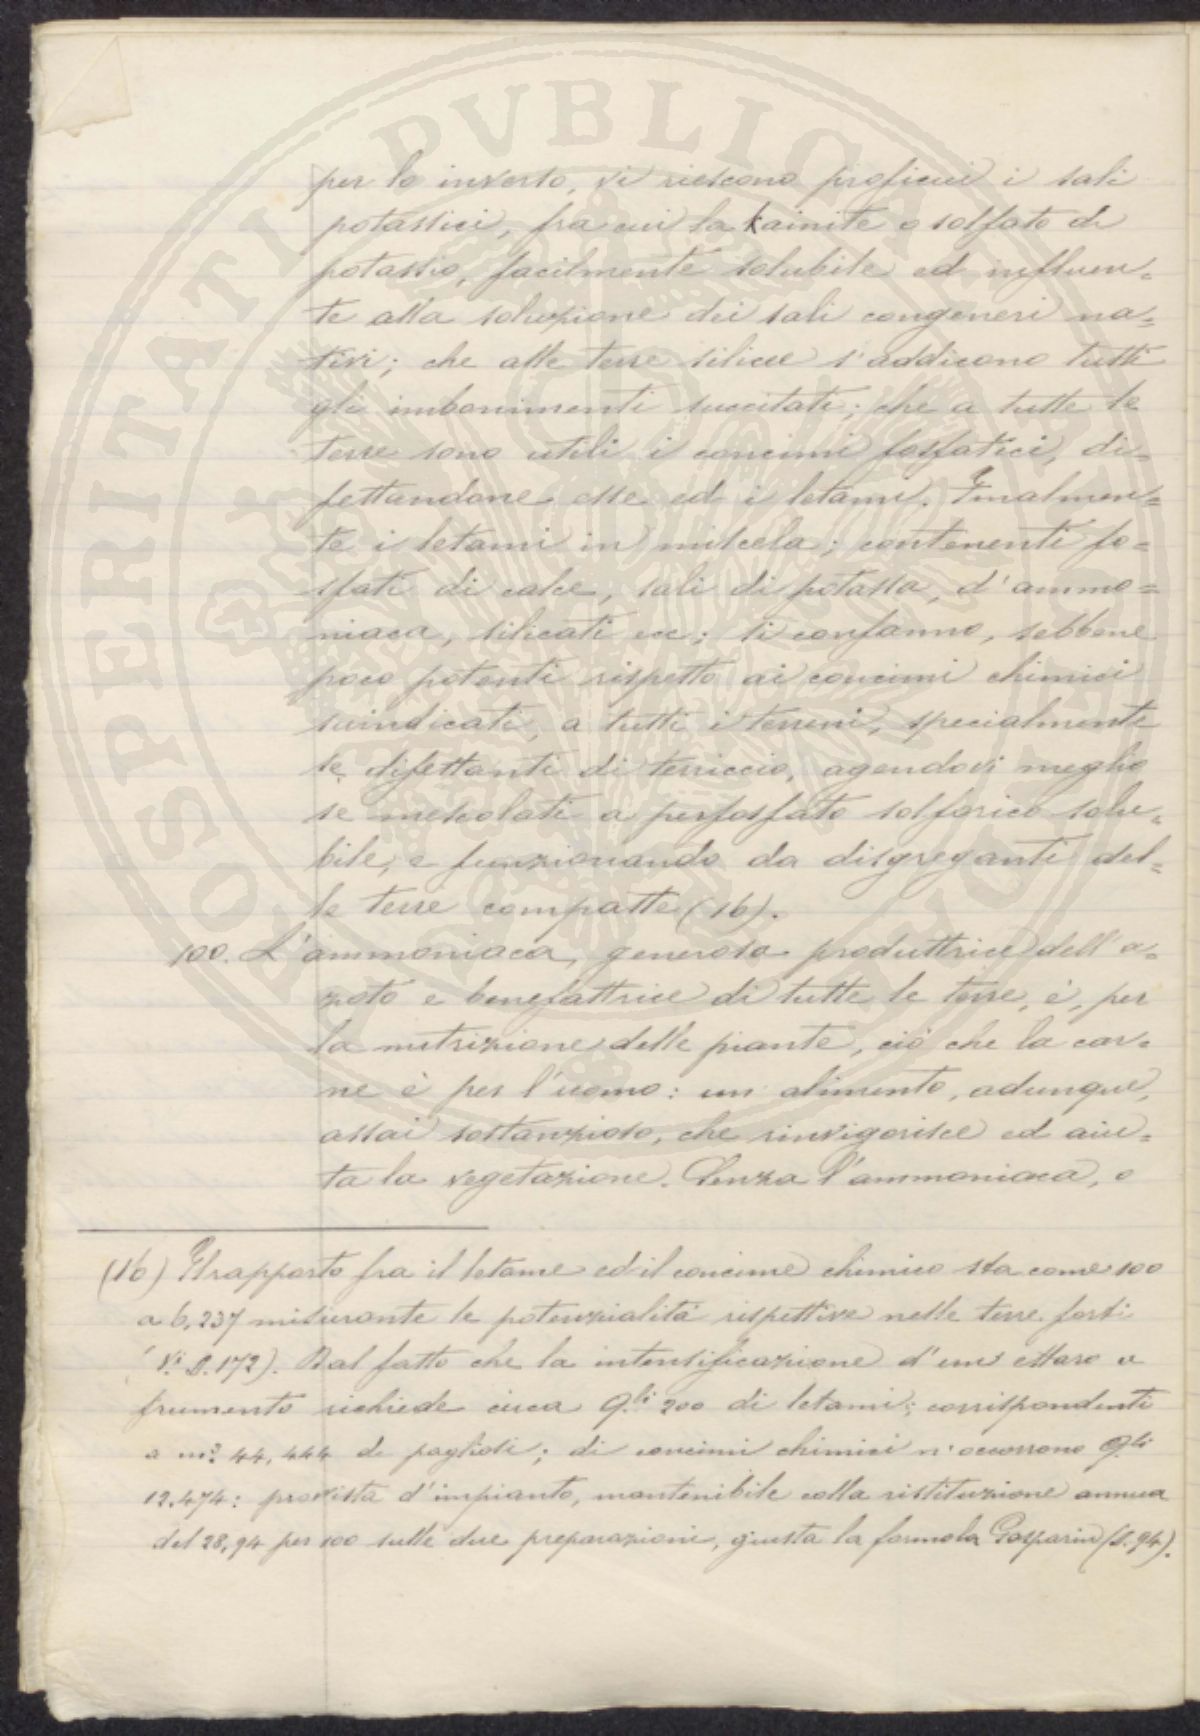 per lo inverso, vi riescono proficui i sali
potassici, fra cui la kainite o solfato di
potassio, facilmente solubile ed influen=
te alla soluzione dei sali congeneri na=
tivi; che alle terre silicee s'addicono tutti
gli imbonimenti succitati; che a tutte le
terre sono utili i concimi fosfatici, di=
fettandone esse ed i letami. Finalmen=
te i letami in miscela; contenenti fo=
sfati di calce, sali di potassa, d'ammo=
niaca, silicati ecc; si confanno, sebbene
poco potenti rispetto ai concimi chimici
suindicati, a tutti i terreni, specialmente
se difettanti di terriccio, agendovi meglio
se mescolati a perfosfato solforico solu=
bile, e funzionando da disgreganti del=
le terre compatte (16).
100. L'ammoniaca, generosa produttrice dell'a=
zoto e benefattrice di tutte le terre, è, per
la nutrizione delle piante, ciò che la car=
ne è per l'uomo: un alimento, adunque,
assai sostanzioso, che rinvigorisce ed aiu=
ta la vegetazione. Senza l'ammoniaca, o
(16) Il rapporto fra il letame ed il concime chimico sta come 100
a 6,237 misurante le potenzialità rispettive nelle terre forti
(Vi D. 172). Dal fatto che la intensificazione d'un ettaro a
frumento richiede circa Q.li 200 di letami; corrispondenti
a m.³ 44,444 di pagliosi; di concimi chimici n'occorrono Q.li
12.474: provvista d'impianto, mantenibile colla ristituzione annua
del 28,94 per 100 sulle due preparazioni, giusta la formola Gasparin (D. 94).
PROSPERITATI PVBLICAE